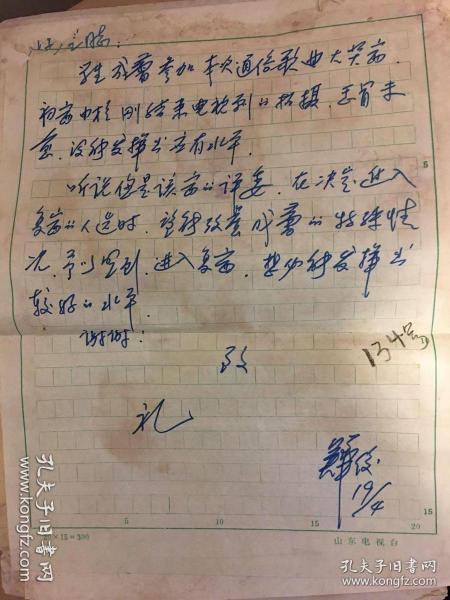 参加本次通俗歌曲大奖赛,
初赛由于刚结束电视剧的拍摄,
没能发挥出应有水平。
听说您是该赛的评委,在决定进入
复赛的人选时,望能考虑成蕾的特殊情
况,予以照顾,进入复赛,想必能发挥出
较好的水平。
谢谢!
134号
致
礼
19/4
20×15=300
5
10
15
20
5
15
山东电视台
孔夫子旧书网
孔夫子旧书网